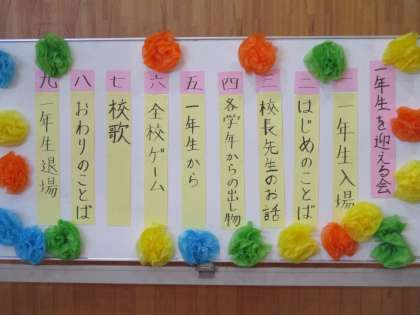 一年生を迎える会
一 一年生入場
二 はじめのことば
三 校長先生のお話
四 各学年からの出し物
五 一年生から
六 全校ゲーム
七 校歌
八 おわりのことば
九 一年生退場